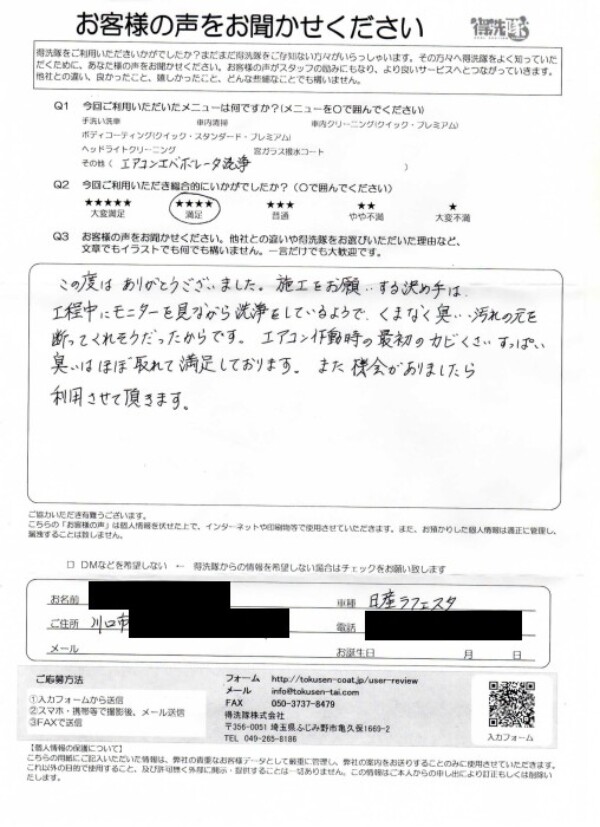 お客様の声をお聞かせください
得洗隊
得洗隊をご利用いただきいかがでしたか?まだまだ得洗隊をご存知ない方々がいらっしゃいます。その方々へ得洗隊をよく知っていた
だくために、あなた様の声をお聞かせください。お客様の声がスタッフの励みにもなり、より良いサービスへとつながっていきます。
他社との違い、良かったこと、嬉しかったこと、どんな些細なことでも構いません。
Q1 今回ご利用いただいたメニューは何ですか?(メニューを〇で囲んでください)
手洗い洗車 車内清掃 車内クリーニング(クイック・プレミアム)
ボディコーティング(クイック・スタンダード・プレミアム)
ヘッドライトクリーニング 窓ガラス撥水コート
その他( エアコンエバポレータ洗浄 )
Q2 今回ご利用いただき総合的にいかがでしたか?(〇で囲んでください)
★★★★★ ★★★★ ★★★ ★★ ★
大変満足 満足 普通 やや不満 大変不満
Q3 お客様の声をお聞かせください。他社との違いや得洗隊をお選びいただいた理由など、
文章でもイラストでも何でも構いません。一言だけでも大歓迎です。
この度はありがとうございました。施工をお願いする決め手は、
工程中にモニターを見ながら洗浄をしているようで、くまなく臭い汚れの元を
断ってくれそうだったからです。エアコン作動時の最初のカビくさいすっぱい
臭いはほぼ取れて満足しております。また機会がありましたら
利用させて頂きます。
ご協力いただき有難うございます。
こちらの「お客様の声」は個人情報を伏せた上で、インターネットや印刷物等で使用させていただきます。また、お預かりした個人情報は適正に管理し、
漏洩することは致しません。
□ DMなどを希望しない ← 得洗隊からの情報を希望しない場合はチェックをお願い致します
お名前 車種 日産ラフェスタ
ご住所 川口市 電話
メール お誕生日 月 日
ご応募方法
①入力フォームから送信
②スマホ・携帯等で撮影後、メール送信
③FAXで送信
フォーム http://tokusen-coat.jp/user-review
メール info@tokusen-tai.com
FAX 050-3737-8479
得洗隊株式会社
〒356-0051 埼玉県ふじみ野市亀久保1669-2
TEL 049-265-6186
入力フォーム
【個人情報の保護について】
こちらの用紙にご記入いただいた情報は、弊社の貴重なお客様データとして厳重に管理し、弊社の案内をお送りすることのみに使用させていただきます。
これ以外の目的で使用すること、及び許可無く外部に開示・提供することは一切ありません。この情報はご本人からの申し出により訂正もしくは削除い
たします。